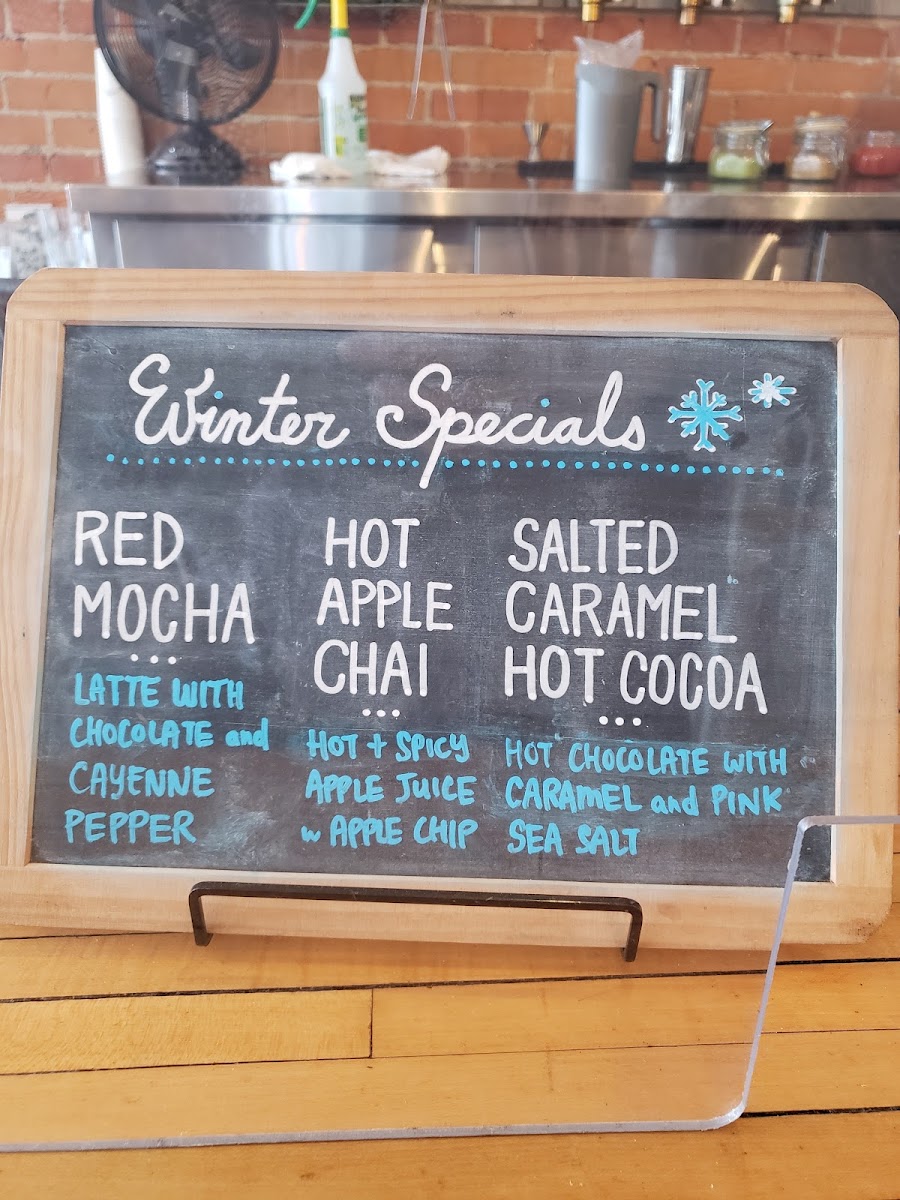 Winter Specials
RED
MOCHA
...
LATTE WITH
CHOCOLATE and
CAYENNE
PEPPER
HOT
APPLE
CHAI
...
HOT + SPICY
APPLE JUICE
w APPLE CHIP
SALTED
CARAMEL
HOT COCOA
...
HOT CHOCOLATE WITH
CARAMEL and PINK
SEA SALT